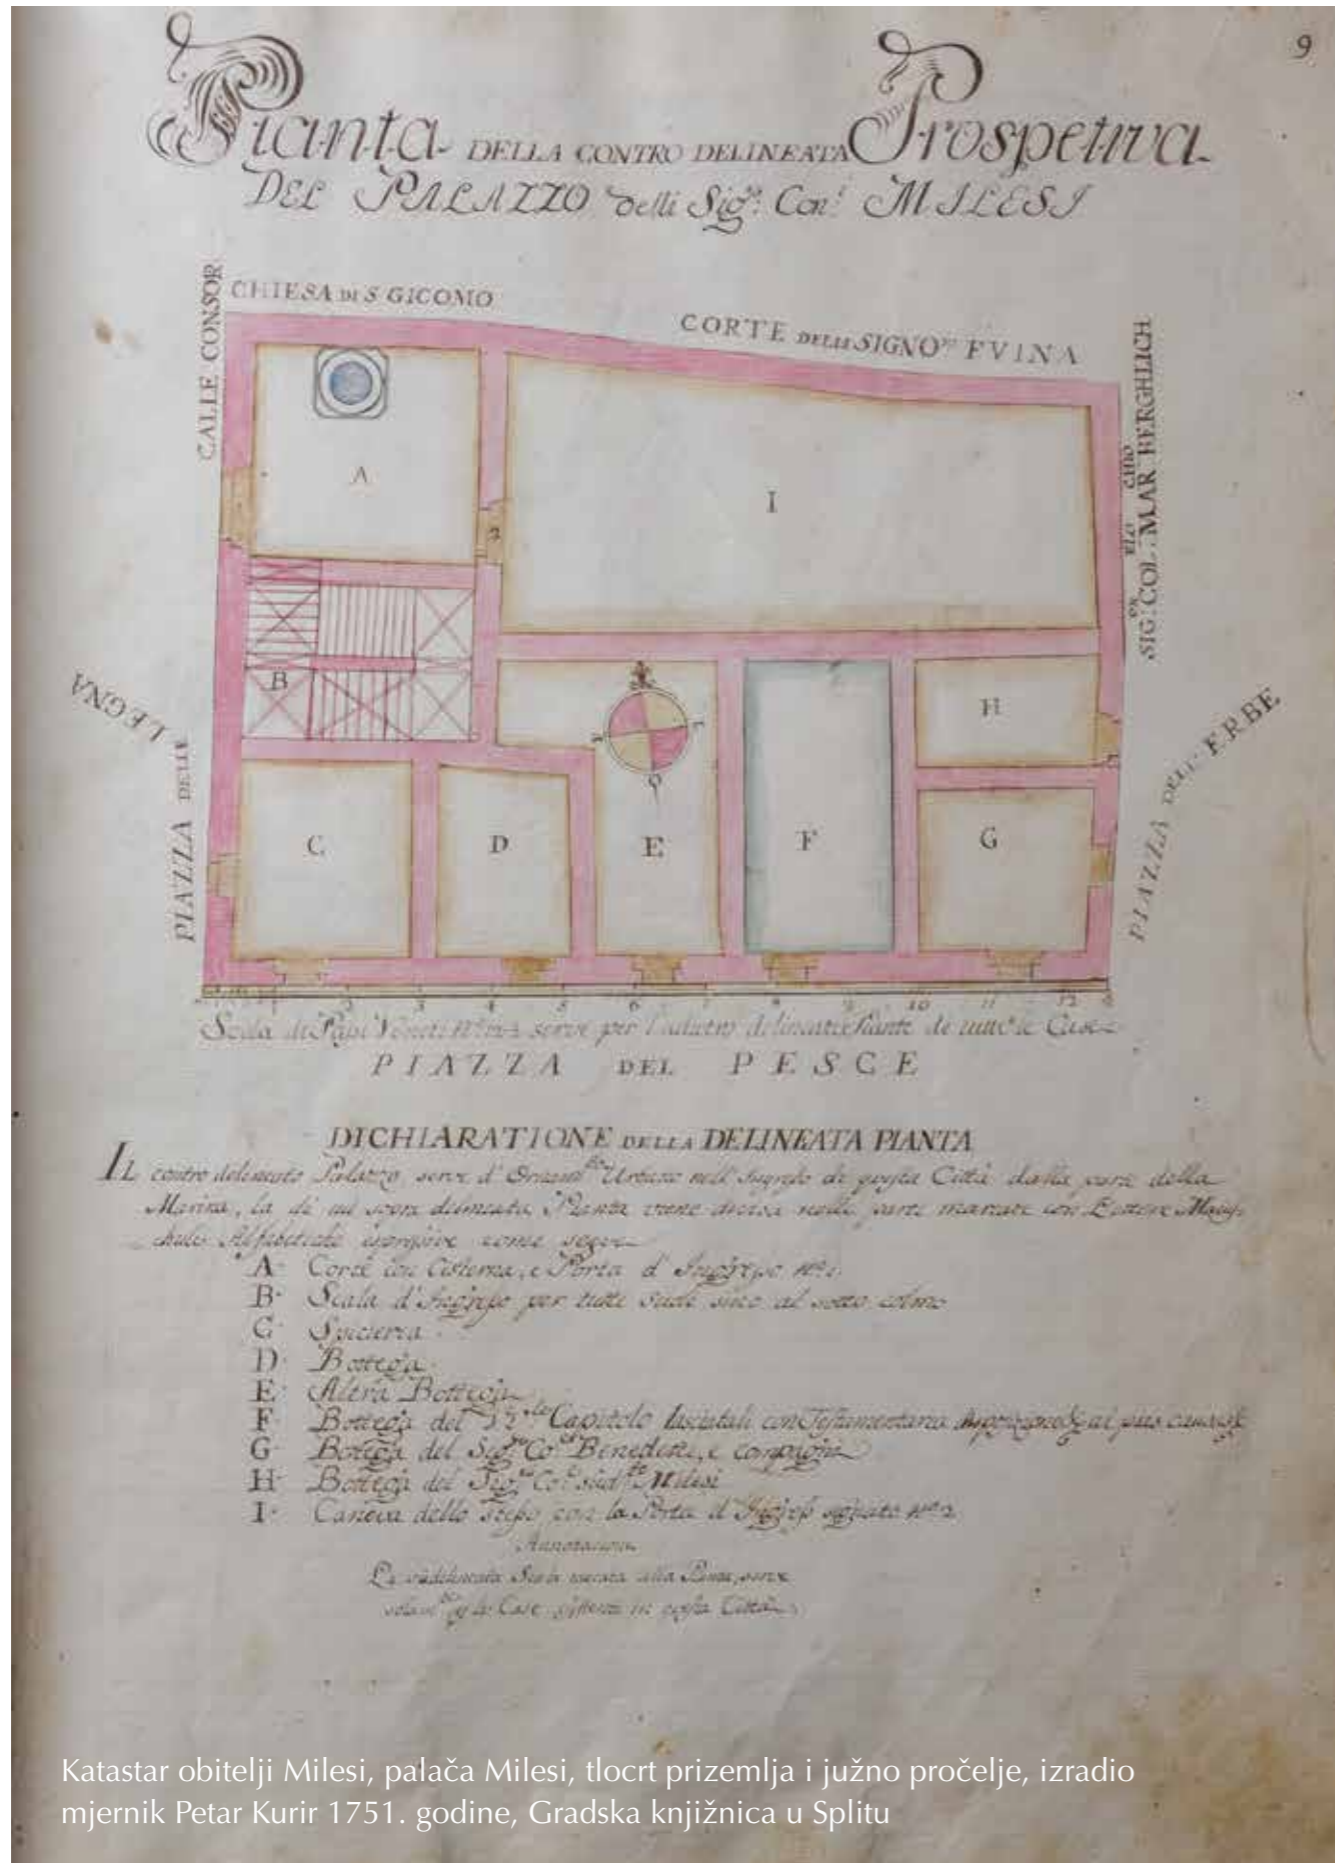 9
Pianta DELLA CONTRO DELINEATA Prospetiva
DEL PALAZZO delli Sig.ri Con.i MILESI
CALLE CONSOR
CHIESA DI S GICOMO
CORTE DELLI SIGNO.RI FVINA
SIG:OR COL:ELO MAR CHIO BERGHLICH
A
2
I
B
H
C
D
E
F
G
PIAZZA DELLE LEGNA
PIAZZA DELL' ERBE
1 2 3 4 5 6 7 8 9 10 11 12
Scala di Passi Veneti serve per Piante de tutte le Case
PIAZZA DEL PESCE
DICHIARATIONE DELLA DELINEATA PIANTA
IL contro delineato Palazzo serve d' Urbano nell' Ingresso di questa Città dalla parte della
Marina, la di cui sopra delineata Pianta viene divisa nelle parte marcate con Lettere Maiu-
schule Alfabetiche come segue
A. Corte con Cisterna, e Porta d' Ingresso No. 1.
B. Scala d' Ingresso per tutti sino al sotto colmo
C. Spicieria
D. Bottega
E. Altra Bottega
F. Bottega del Capitolo lasciatali con Testamentaria
G. Bottega del Sig.r Co. Benedetti, e compagni
H. Bottega del Sig.r Co. Milesi
I. Caneva dello stesso con la Porta d' Ingresso signato No. 2
Annotazione
La Scala alla Pianta, serve
le Case in questa Città
Katastar obitelji Milesi, palača Milesi, tlocrt prizemlja i južno pročelje, izradio
mjernik Petar Kurir 1751. godine, Gradska knjižnica u Splitu